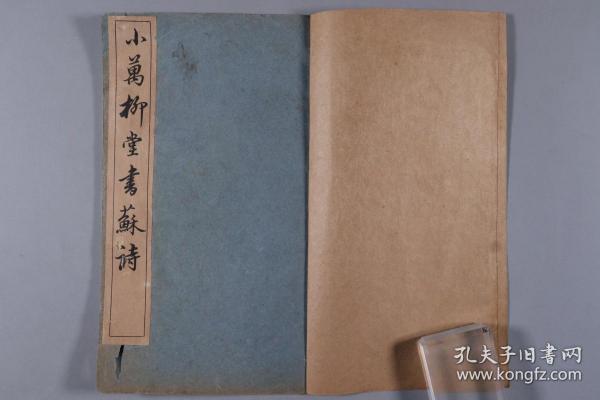 小萬柳堂書蘇詩
孔夫子旧書网
www.kongfz.com